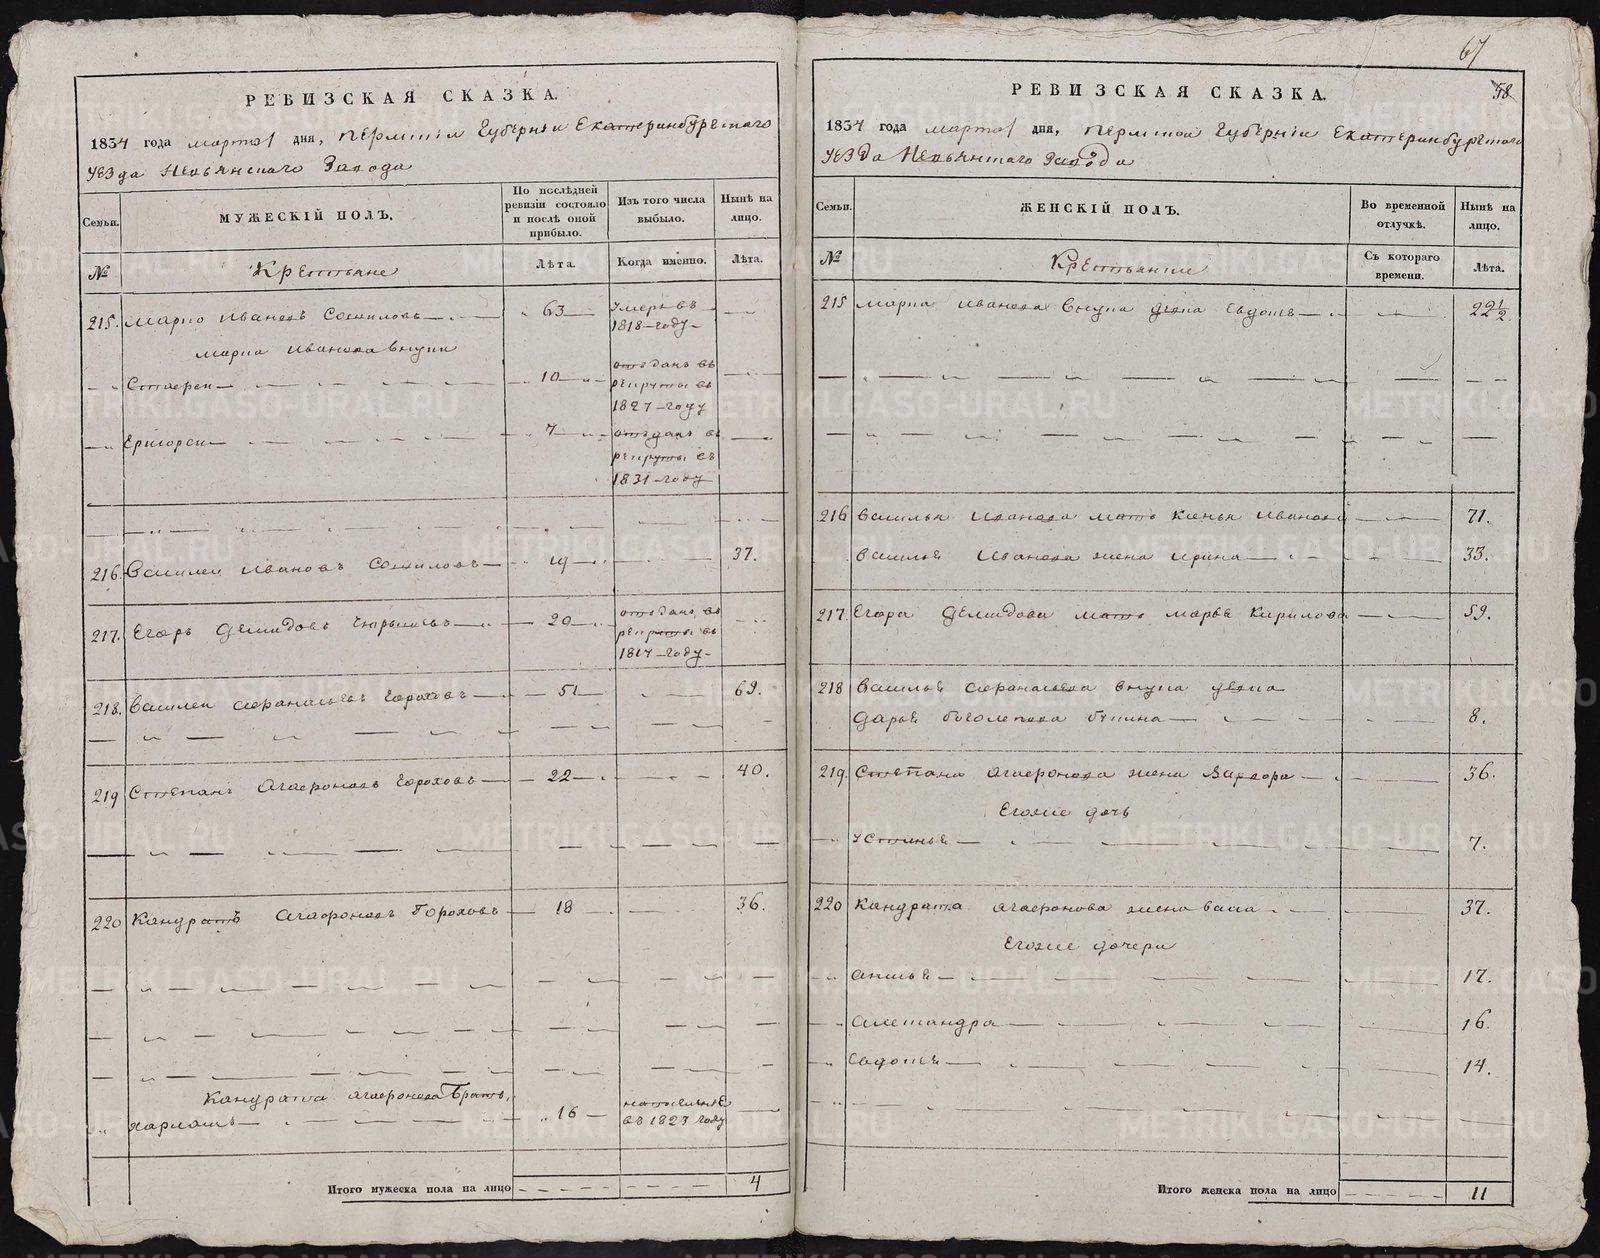 РЕВИЗСКАЯ СКАЗКА.
1834 года марта 1 дня, Пермския Губернии Екатеринбургскаго
уезда Невьянскаго завода
Семьи.
МУЖЕСКІЙ ПОЛЪ.
По послѣдней ревизіи состояло и послѣ оной прибыло.
Изъ того числа выбыло.
Нынѣ на лицо.
№
Крестьяне
Лѣта.
Когда именно.
Лѣта.
215. Марко Ивановъ 63 Умеръ въ 1818 году
Марка Иванова внуки
10 отъданъ въ рекруты въ 1827 году
Григореи 7 отъданъ въ рекруты въ 1831 году
216. Василеи Ивановъ 19 37.
217. Егоръ Демидовъ 20 отъданъ въ рекруты въ 1817 году
218. Василеи Гороховъ 51 69.
219 Степанъ Агафоновъ Гороховъ 22 40.
220 Кандратъ Агафоновъ Гороховъ 18 36.
Кандрата Агафонова братъ,
16 въ 1827 году
Итого мужеска пола на лицо 4
67
58
РЕВИЗСКАЯ СКАЗКА.
1834 года марта 1 дня, Пермской Губернии Екатеринбургскаго
уезда Невьянскаго завода
Семьи.
ЖЕНСКІЙ ПОЛЪ.
Во временной отлучкѣ.
Нынѣ на лицо.
№
Съ котораго времени.
Лѣта.
215 Марка Иванова внука девка 22 1/2
216 Василья Иванова мать Иванова 71.
Василье Иванова жена Ирина 33.
217. Егора Демидова мать Марье Кирилова 59.
218 Василье внука девка
Дарье 8.
219. Степана Агафонова жена Варвара 36.
Егоже дочь
Устинье 7.
220 Кандрата Агафонова жена Васа 37.
Егоже дочери
Анисье 17.
Александра 16.
14.
Итого женска пола на лицо 11
METRIKI.GASO-URAL.RU